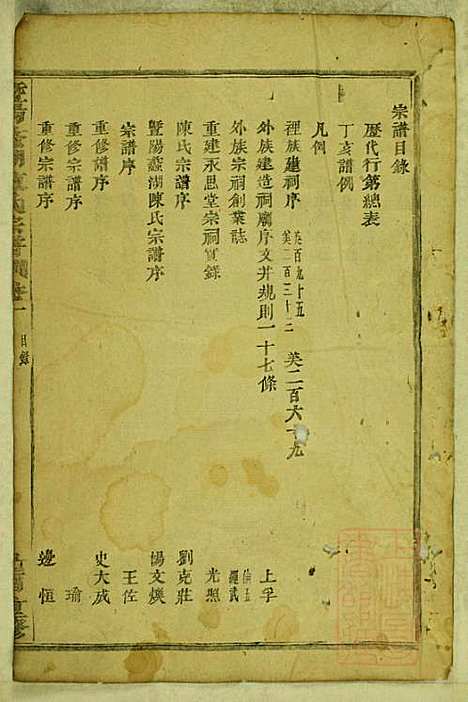 宗譜目錄
歷代行第總表
丁亥譜例
凡例
裡族建祠序 英百九十五 英二百三十三 英二百六十九
外族建造祠廟序文并規則一十七條 上孚
外族宗祠創業誌
重建永思堂宗祠實錄 光照
陳氏宗譜序 劉克莊
暨陽蠡湖陳氏宗譜序 楊文煥
宗譜序 王佐
重修譜序 史大成
重修宗譜序 瑜
重修宗譜序 邊恒
目錄